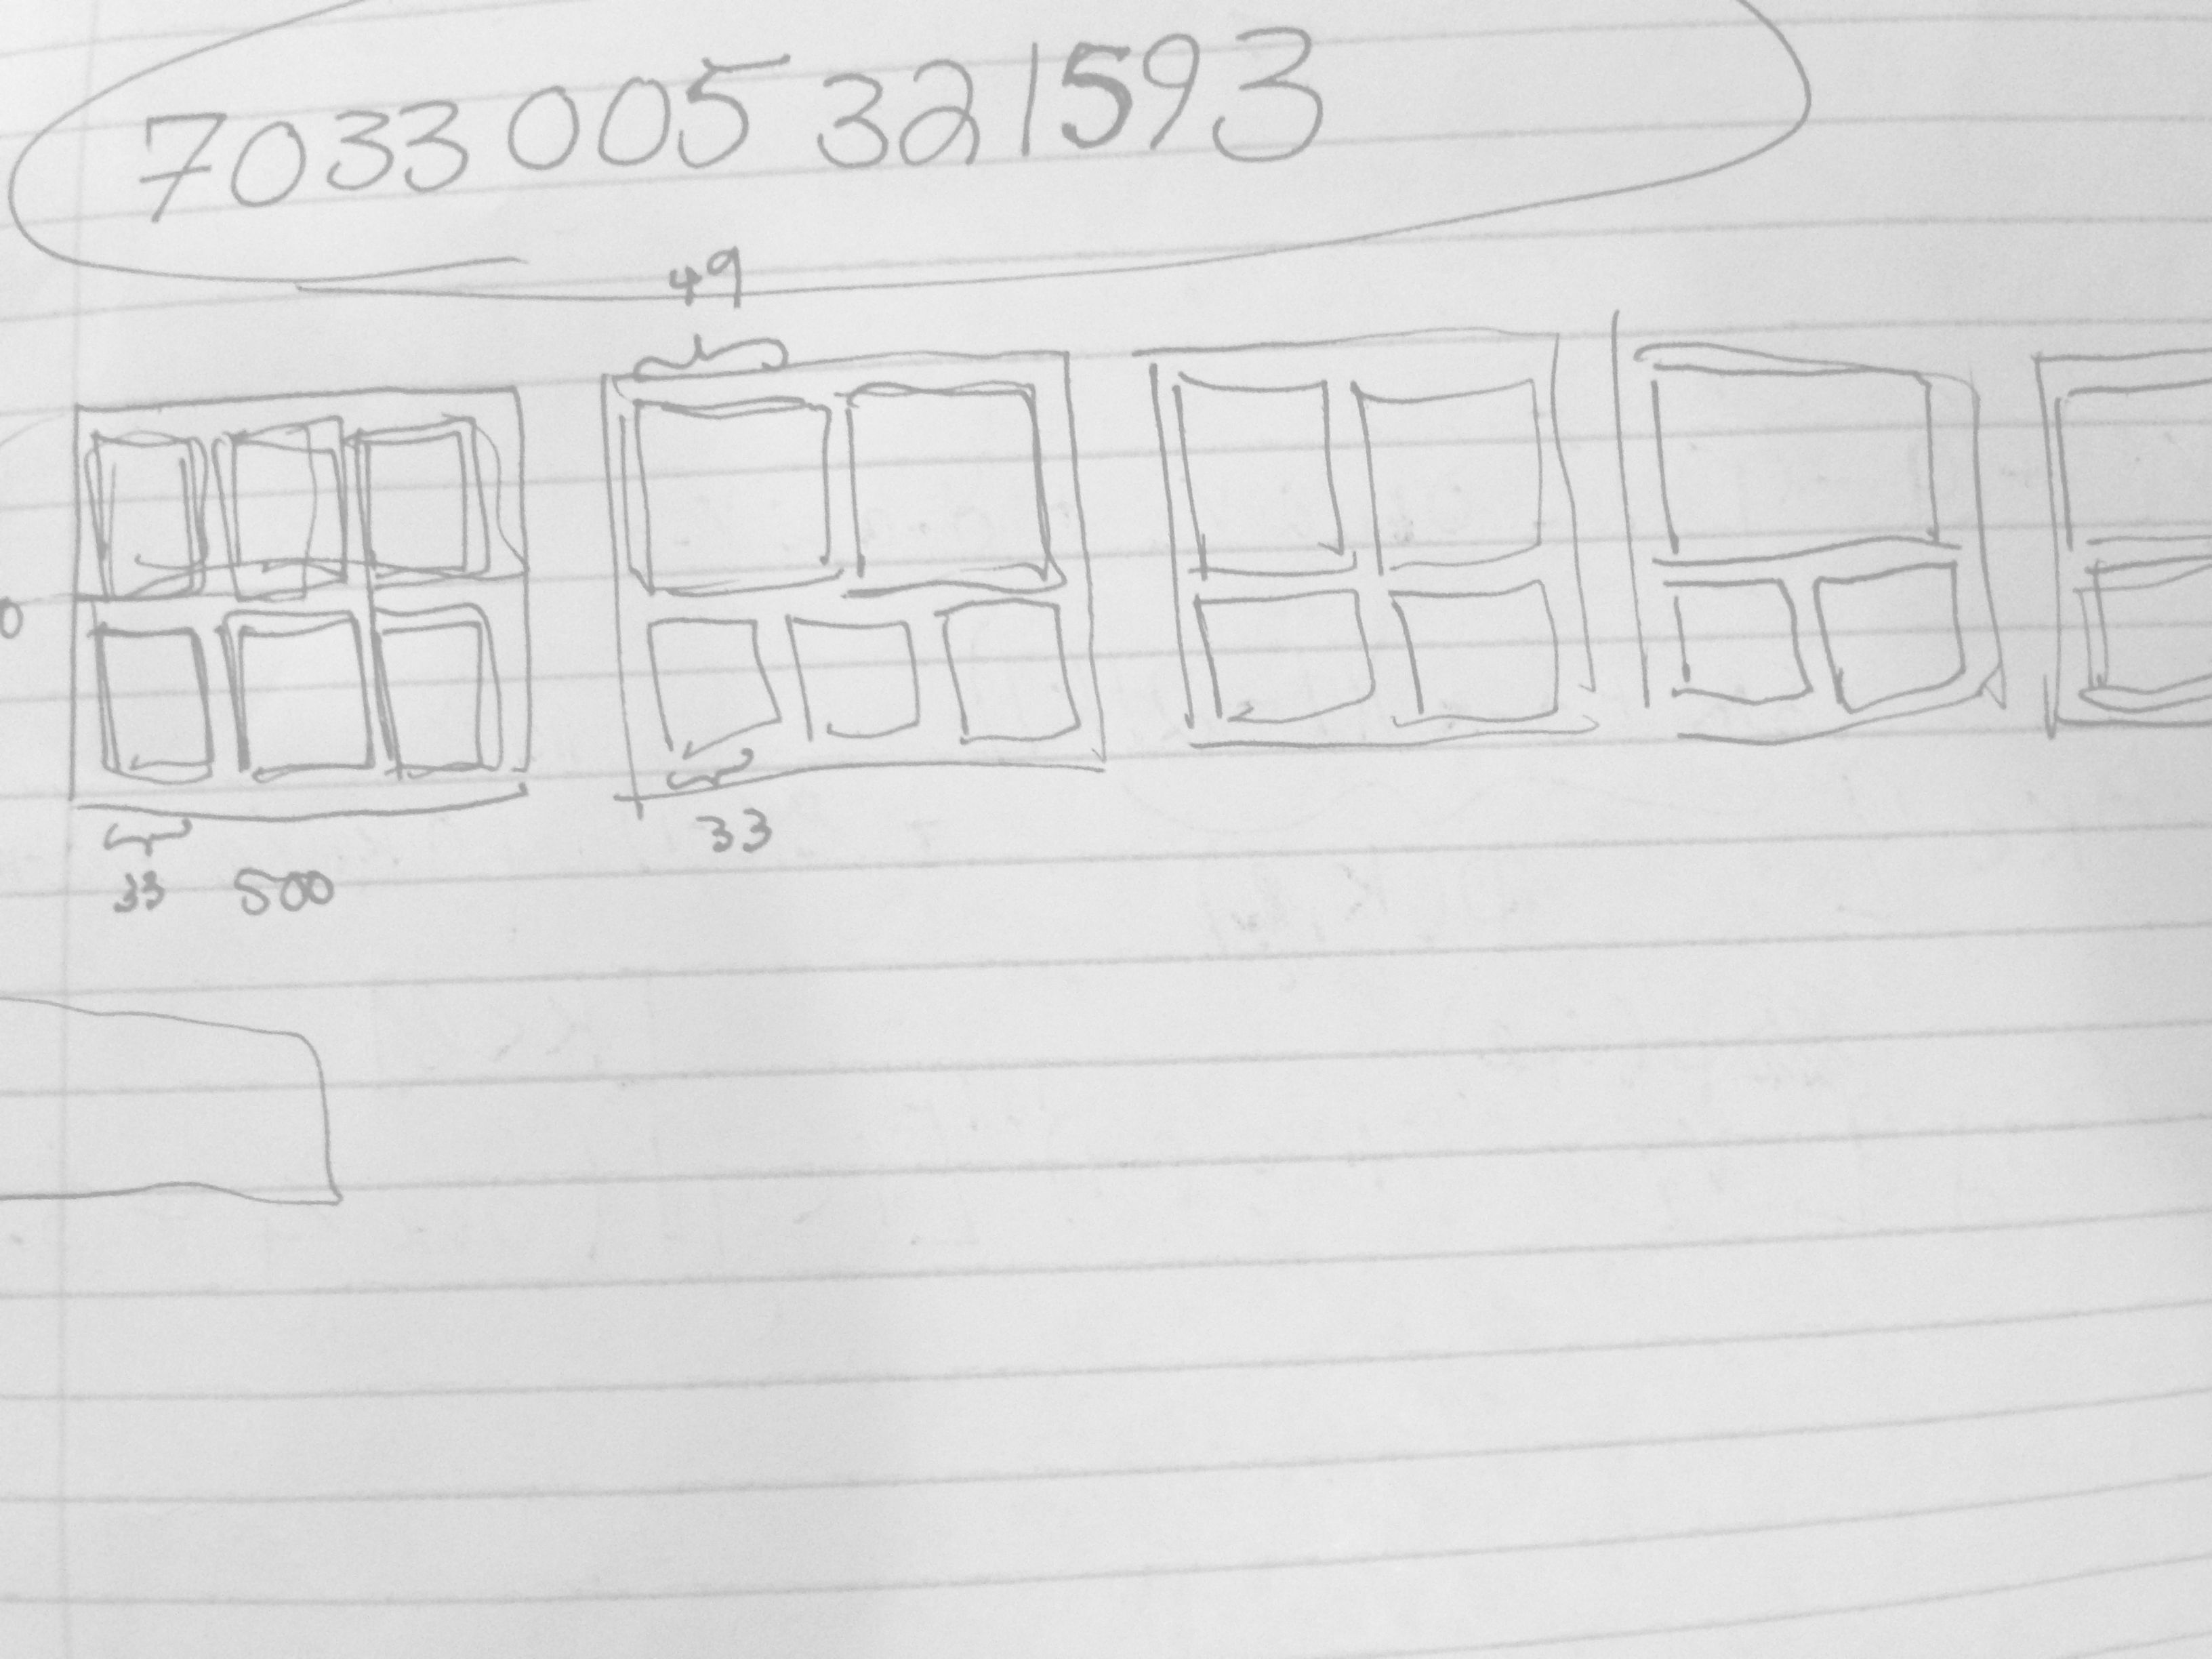 7033 005 321593
49
0
33
33 500